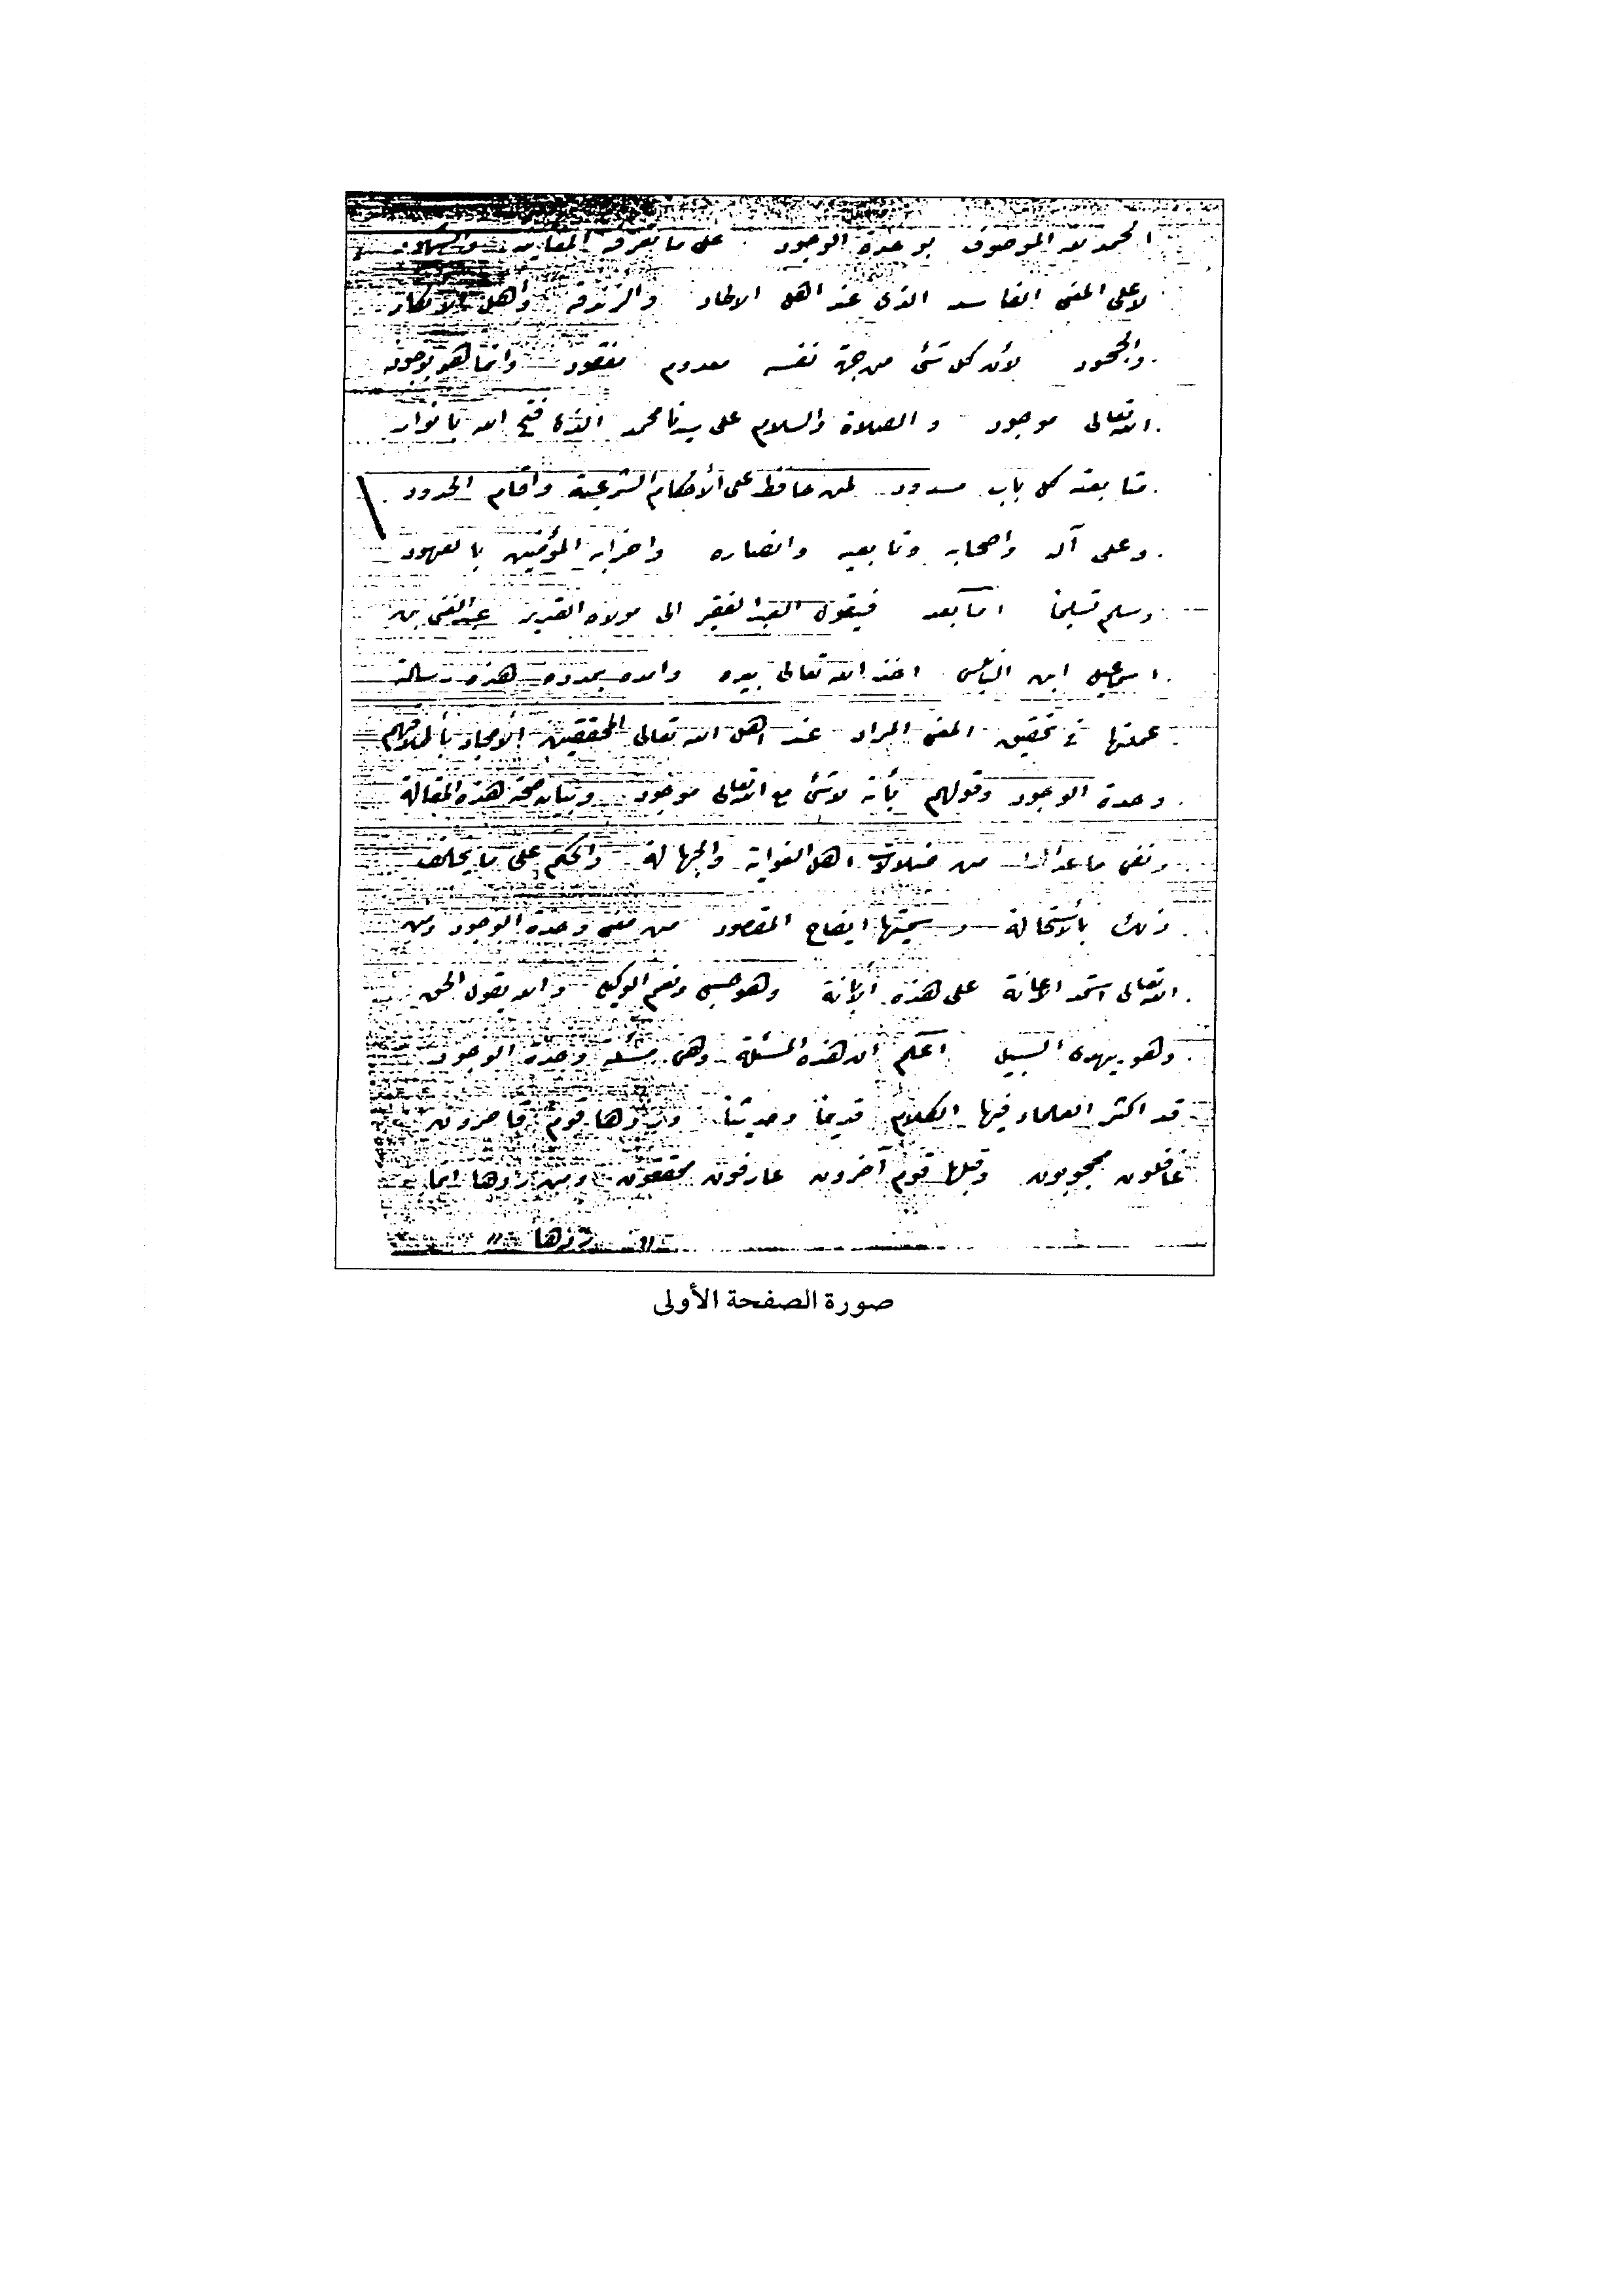 الحمد لله الموصوف بوحدة الوجود على ما تعرفه
لا على المعنى الفاسد الذى عند اهل الالحاد والزندقة وأهل الانكار
والجحود لأن كل شئ من جهة نفسه معدوم مفقود وانما هو بوجود
الله تعالى موجود والصلاة والسلام على سيدنا محمد الذى فتح الله بانوار
متابعته كل باب مسدود لمن حافظ على الأحكام الشرعية واقام الحدود
وعلى آله واصحابه وتابعيه وانصاره واحزابه الموفين بالعهود
وسلم تسليما اما بعد فيقول العبد الفقير الى مولاه القدير عبد الغنى بن
اسمعيل ابن النابلسى اخذ الله تعالى بيده وامده بمدده هذه رسالة
عملتها فى تحقيق المعنى المراد عند اهل الله تعالى المحققين الأمجاد بأطلاقهم
وحدة الوجود وقولهم بأنه لا شئ مع الله تعالى موجود وبيان صحة هذه المقالة
ونفى ما عدا من ضلالات اهل الغواية والجهالة والحكم على ما يخالف
ذلك بالأستحالة وسميتها ايضاح المقصود من معنى وحدة الوجود ومن
الله تعالى استمد الاعانة على هذه الأبانة وهو حسبى ونعم الوكيل والله يقول الحق
وهو يهدى السبيل اعلم ان هذه المسئلة وهى مسئلة وحدة الوجود
قد اكثر العلماء فيها الكلام قديما وحديثا وردها قوم قاصرون
غافلون محجوبون وقبلها قوم آخرون عارفون محققون ومن ردها انما
ردها
صورة الصفحة الأولى